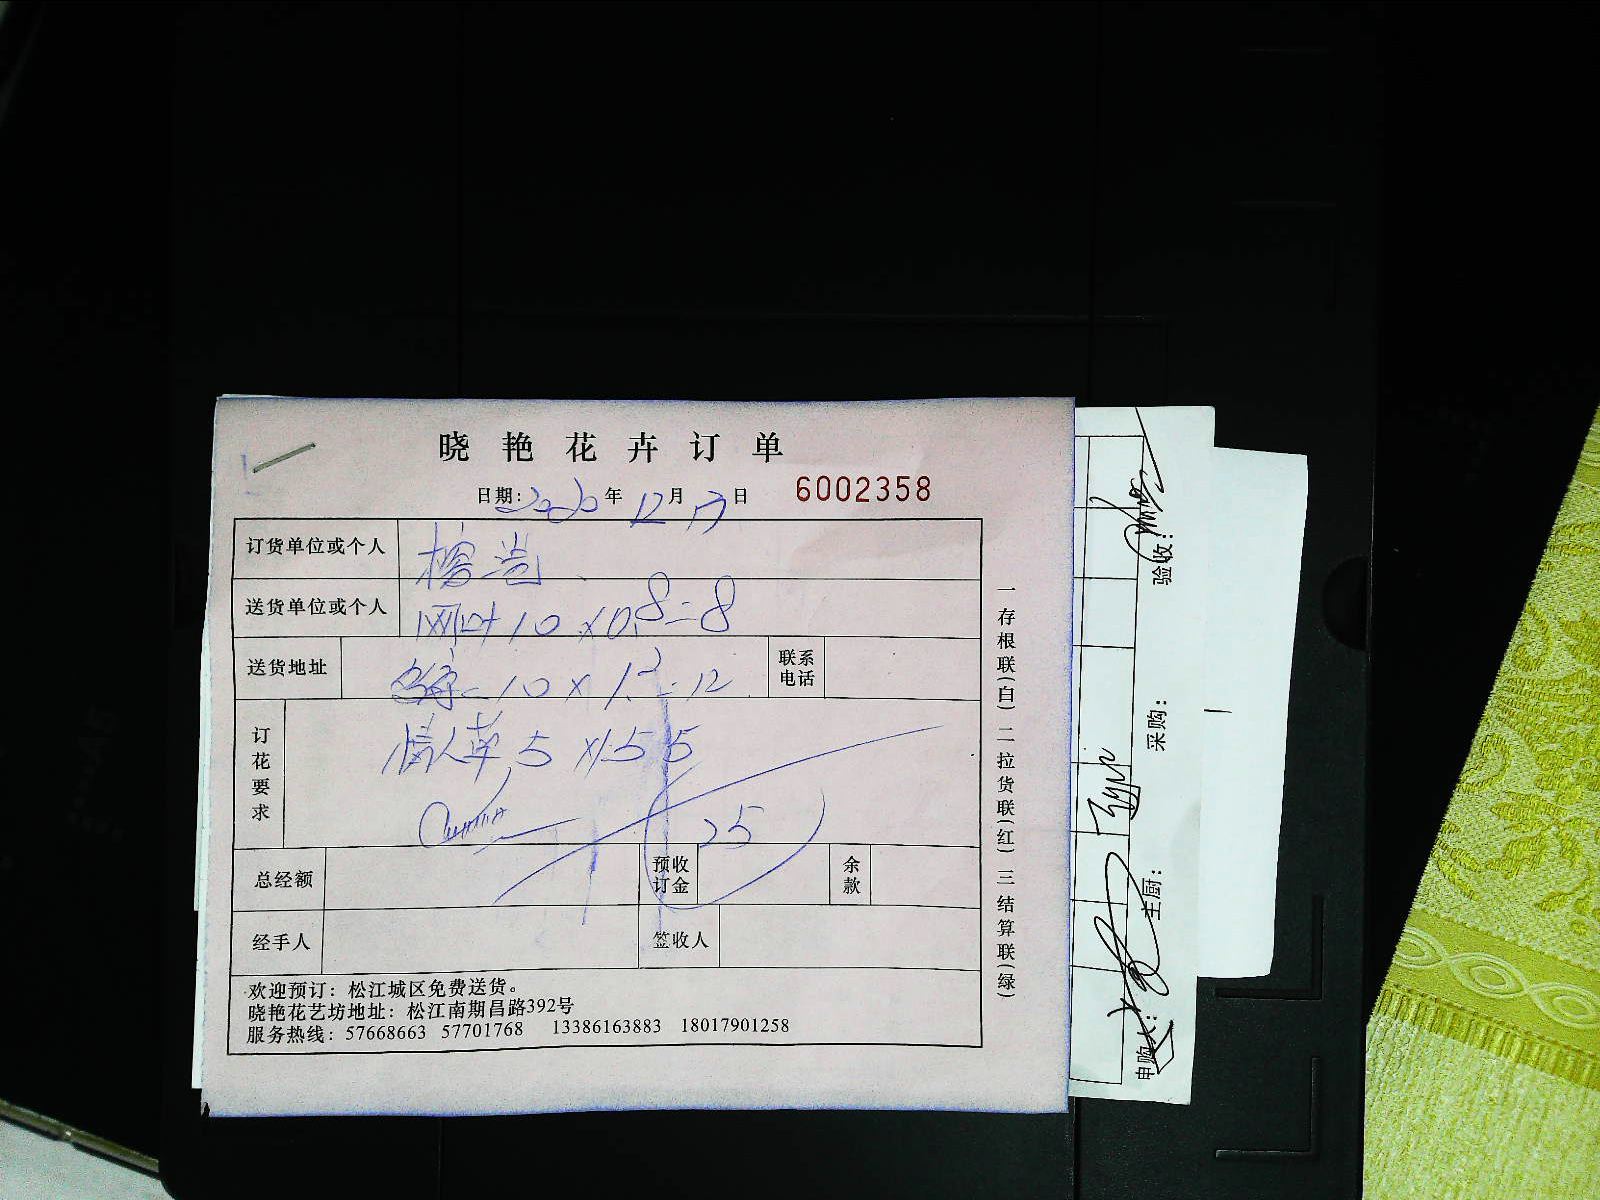 晓艳花卉订单
日期: 2020年12月17日 6002358
订货单位或个人
送货单位或个人 网叶10×0.8=8
送货地址 10×1.2=12 联系电话
订花要求 情人草5×1.5 5
25
总经额 预收订金 余款
经手人 签收人
欢迎预订：松江城区免费送货。
晓艳花艺坊地址：松江南期昌路392号
服务热线：57668663 57701768 13386163883 18017901258
一存根联(白) 二拉货联(红) 三结算联(绿)
申购人： 主厨： 采购： 验收：